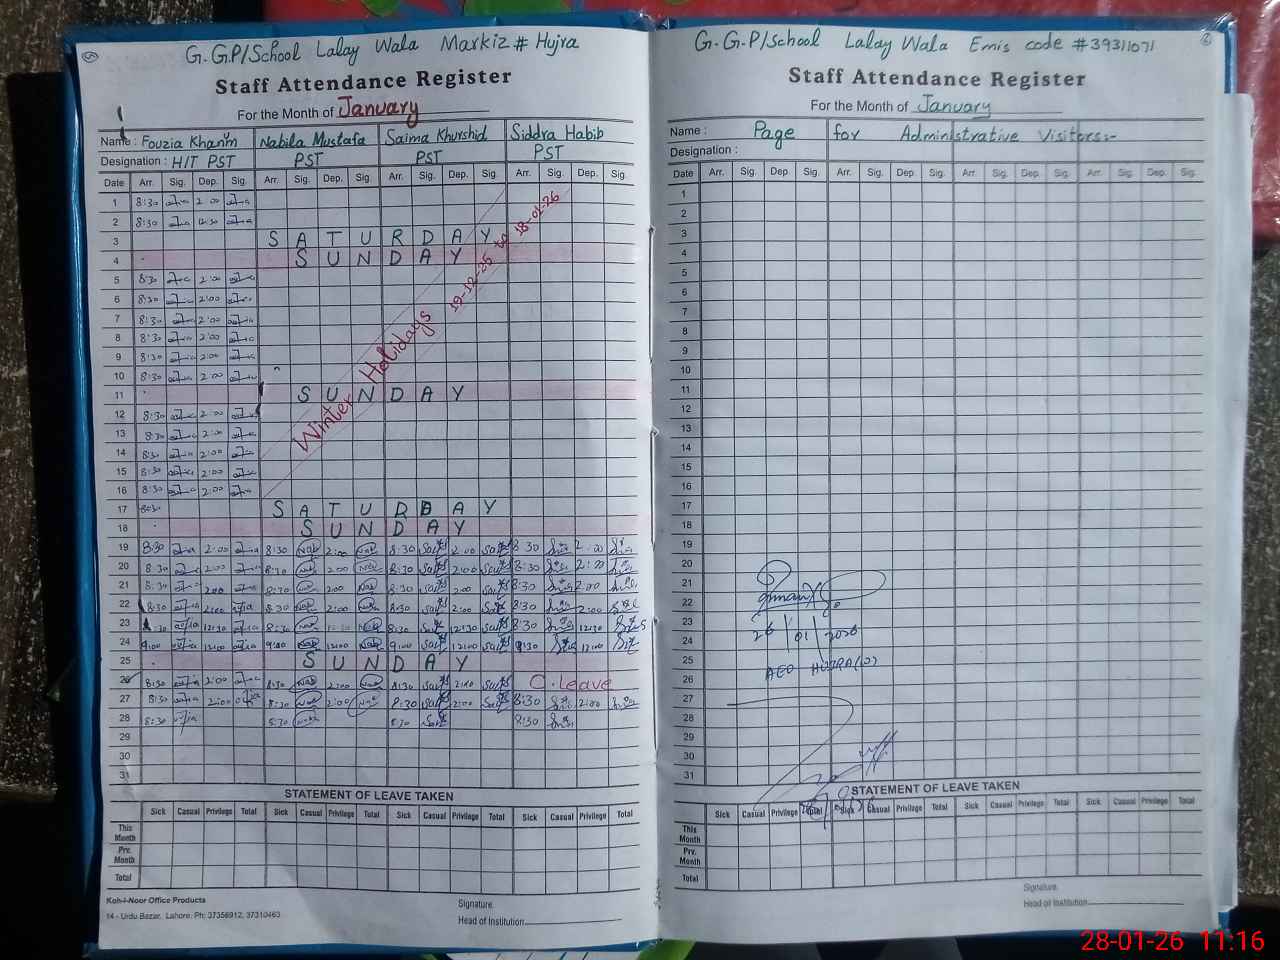 G.G.P/School Lalay Wala Markiz # Hujra
Staff Attendance Register
For the Month of January
Name : Fouzia Khanm Nabila Mustafa Saima Khurshid Siddra Habib
Designation : H/T PST PST PST PST
Date Arr. Sig. Dep. Sig. Arr. Sig. Dep. Sig. Arr. Sig. Dep. Sig. Arr. Sig. Dep. Sig.
1 8:30 2:00
2 8:30 12:30
3 SATURDAY
4 SUNDAY
5 8:30 2:00
6 8:30 2:00
7 8:30 2:00
8 8:30 2:00
9 8:30 2:00
10 8:30 2:00
11 SUNDAY
12 8:30 2:00
13 8:30 2:00
14 8:30 2:00
15 8:30 2:00
16 8:30 2:00
17 8:30 SATURDAY
18 SUNDAY
Winter Holidays 19-12-25 to 18-01-26
19 8:30 2:00 8:30 Nab 2:00 Nab 8:30 2:00 8:30 2:00
20 8:30 2:00 8:30 Nab 2:00 Nab 8:30 2:00 8:30 2:00
21 8:30 2:00 8:30 2:00 Nab 8:30 2:00 8:30 2:00
22 8:30 2:00 8:30 Nab 2:00 Nab 8:30 2:00 8:30 2:00
23 :30 12:30 8:30 Nab Nab 8:30 12:30 8:30 12:30
24 9:00 12:00 9:00 Nab 12:00 Nab 9:00 12:00 9:30 12:00
25 SUNDAY
26 8:30 2:00 8:30 Nab 2:00 Nab 8:30 2:00 C.leave
27 8:30 2:00 8:30 Nab 2:00 Nab 8:30 2:00 8:30 2:00
28 8:30 8:30 Nab 8:30 8:30
29
30
31
STATEMENT OF LEAVE TAKEN
Sick Casual Privilege Total Sick Casual Privilege Total Sick Casual Privilege Total Sick Casual Privilege Total
This Month
Prv. Month
Total
Koh-i-Noor Office Products
14 - Urdu Bazar, Lahore. Ph: 37356912, 37310463
Signature.
Head of Institution
G.G.P/School Lalay Wala Emis code #39311071
2
Staff Attendance Register
For the Month of January
Name : Page for Administrative Visitors:-
Designation :
Date Arr. Sig. Dep Sig. Arr. Sig. Dep. Sig. Arr. Sig. Dep. Sig. Arr. Sig. Dep. Sig.
1
2
3
4
5
6
7
8
9
10
11
12
13
14
15
16
17
18
19
20
21
22
23
24
25
26
27
28
29
30
31
26/01/2026
AEO HUJRA(W)
STATEMENT OF LEAVE TAKEN
Sick Casual Privilege Total Sick Casual Privilege Total Sick Casual Privilege Total Sick Casual Privilege Total
This Month
Prv. Month
Total
Signature.
Head of Institution
28-01-26 11:16